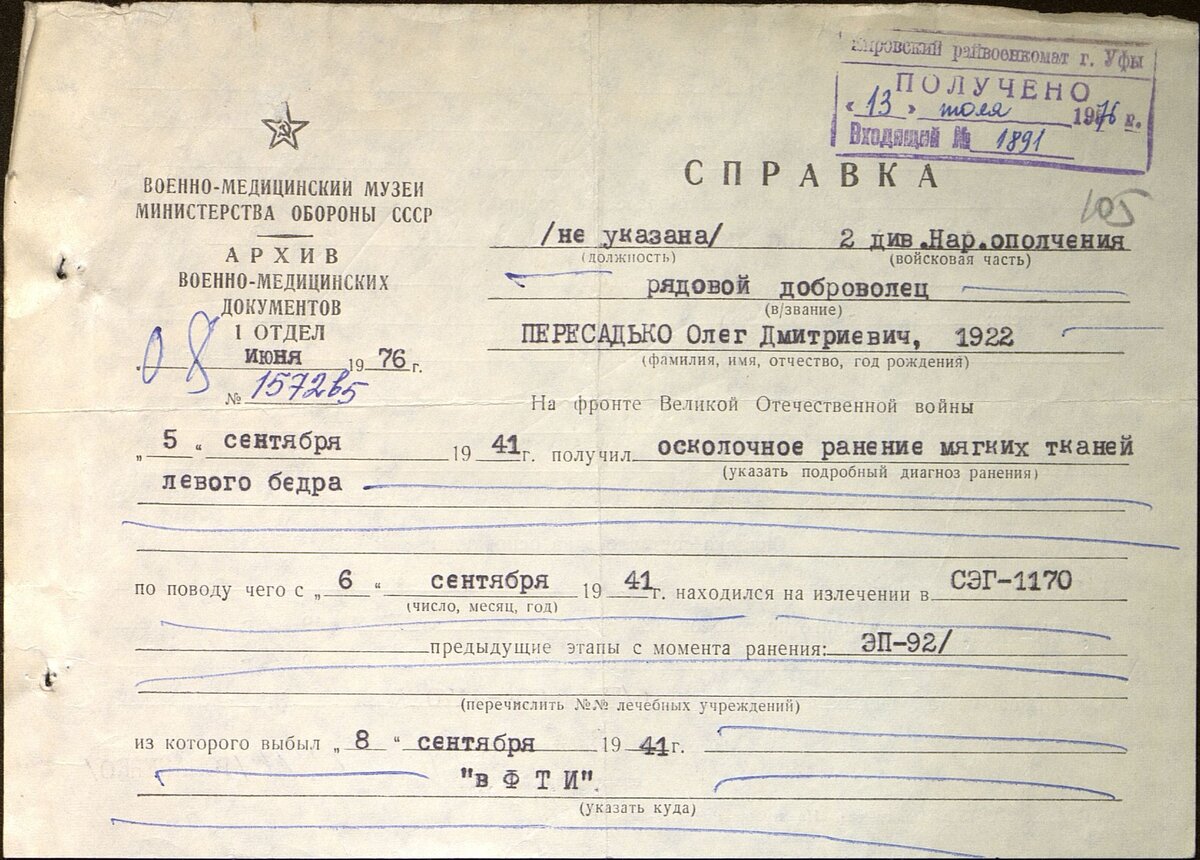 Кировский райвоенкомат г. Уфы
ПОЛУЧЕНО
« 13 » июля 1976 г.
Входящий № 1891
ВОЕННО-МЕДИЦИНСКИЙ МУЗЕЙ
МИНИСТЕРСТВА ОБОРОНЫ СССР
АРХИВ
ВОЕННО-МЕДИЦИНСКИХ
ДОКУМЕНТОВ
1 ОТДЕЛ
08 июня 1976 г.
№
СПРАВКА
105
/не указана/ 2 див.Нар.ополчения
(должность) (войсковая часть)
рядовой доброволец
(в/звание)
ПЕРЕСАДЬКО Олег Дмитриевич, 1922
(фамилия, имя, отчество, год рождения)
На фронте Великой Отечественной войны
„ 5 “ сентября 19 41г. получил осколочное ранение мягких тканей
(указать подробный диагноз ранения)
левого бедра
по поводу чего с „ 6 “ сентября 19 41г. находился на излечении в СЭГ-1170
(число, месяц, год)
предыдущие этапы с момента ранения: ЭП-92/
(перечислить №№ лечебных учреждений)
из которого выбыл „ 8 “ сентября 19 41г.
"в Ф Т И"
(указать куда)